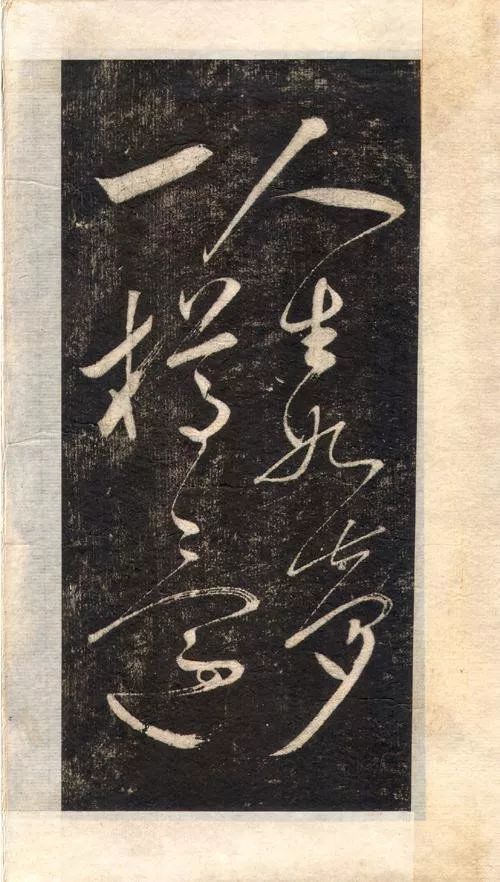 人生如夢
一樽還